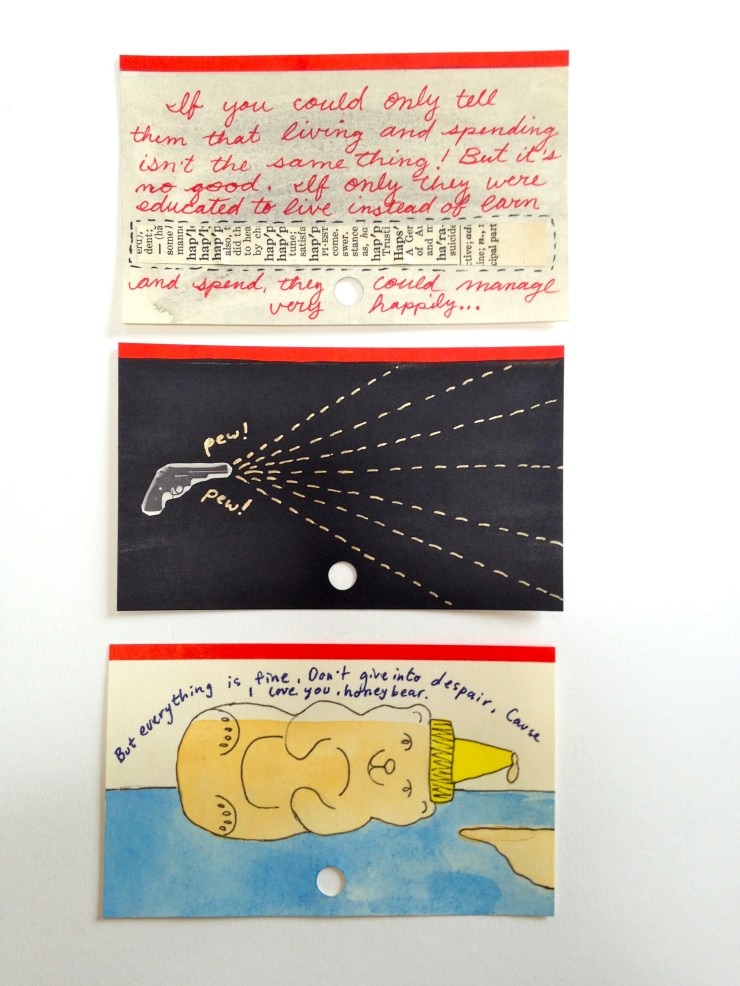 If you could only tell
them that living and spending
isn't the same thing! But it's
no good. If only they were
educated to live instead of earn
eru),
dent;
— (hă
some/
mann
hap'l
hap'l
hap'p
also, t
did th
to hea
by ch
hap'p
hap'p
tune;
satisfa
hap'p
PI-EST
come.
swer.
stance
as, hu
hap'p
Trusti
Haps'
A Ger
of At
and m
ha'ra-
suicide
tive; adj.
ine; n., 1
cipal part
and spend, they could manage
very happily...
pew!
pew!
But everything is fine. Don't give into despair, Cause
I love you, honeybear.